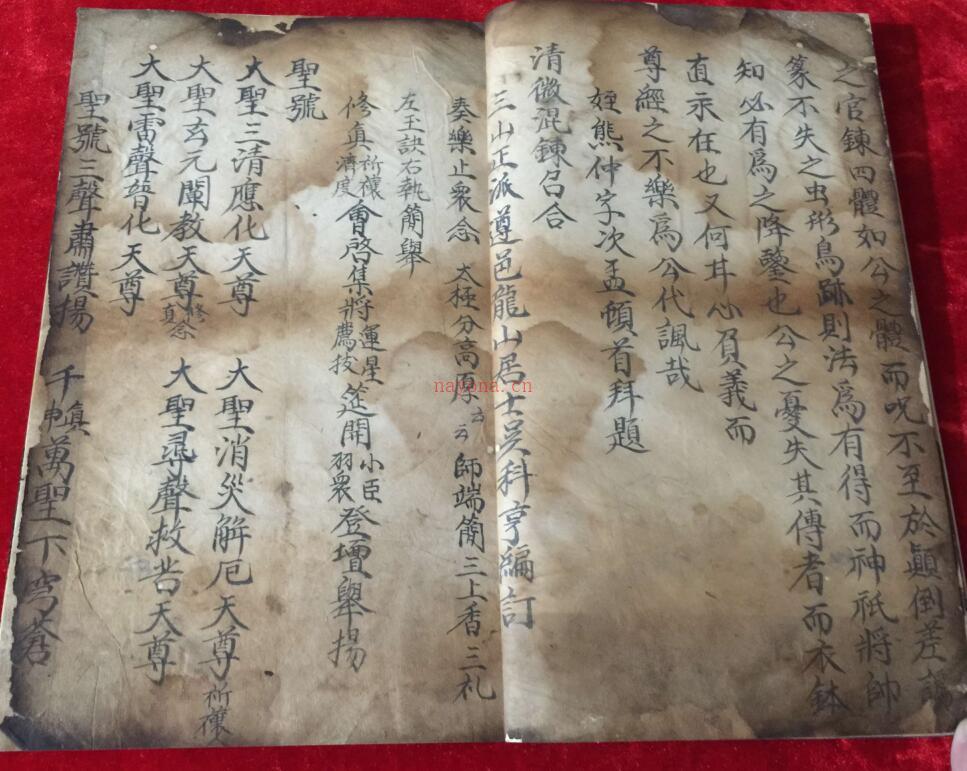 之官鍊四體如公之體而呪不至於顛倒差
篆不失之虫形鳥跡則法爲有得而神祇將帥
知必有爲之降鑒也公之憂失其傳者而衣鉢
直示在也又何幷心負義而
尊經之不樂爲公代諷哉
姪熊仲字次孟頓首拜題
清微混鍊召合
三山正派遵邑龍山居士吴科亨編訂
奏樂止衆念 太極分高厚云云師端簡三上香三礼
左玉訣右執簡舉
修真祈禳濟度會啓集將薦拔運星筵開小臣羽衆登壇舉揚
聖號
大聖三清應化天尊 大聖消災解厄天尊祈禳
大聖玄元闡教天尊修真念 大聖尋聲救苦天尊
大聖雷聲普化天尊
聖號三聲肅讚揚 千真萬聖下穹蒼
nayona.cn